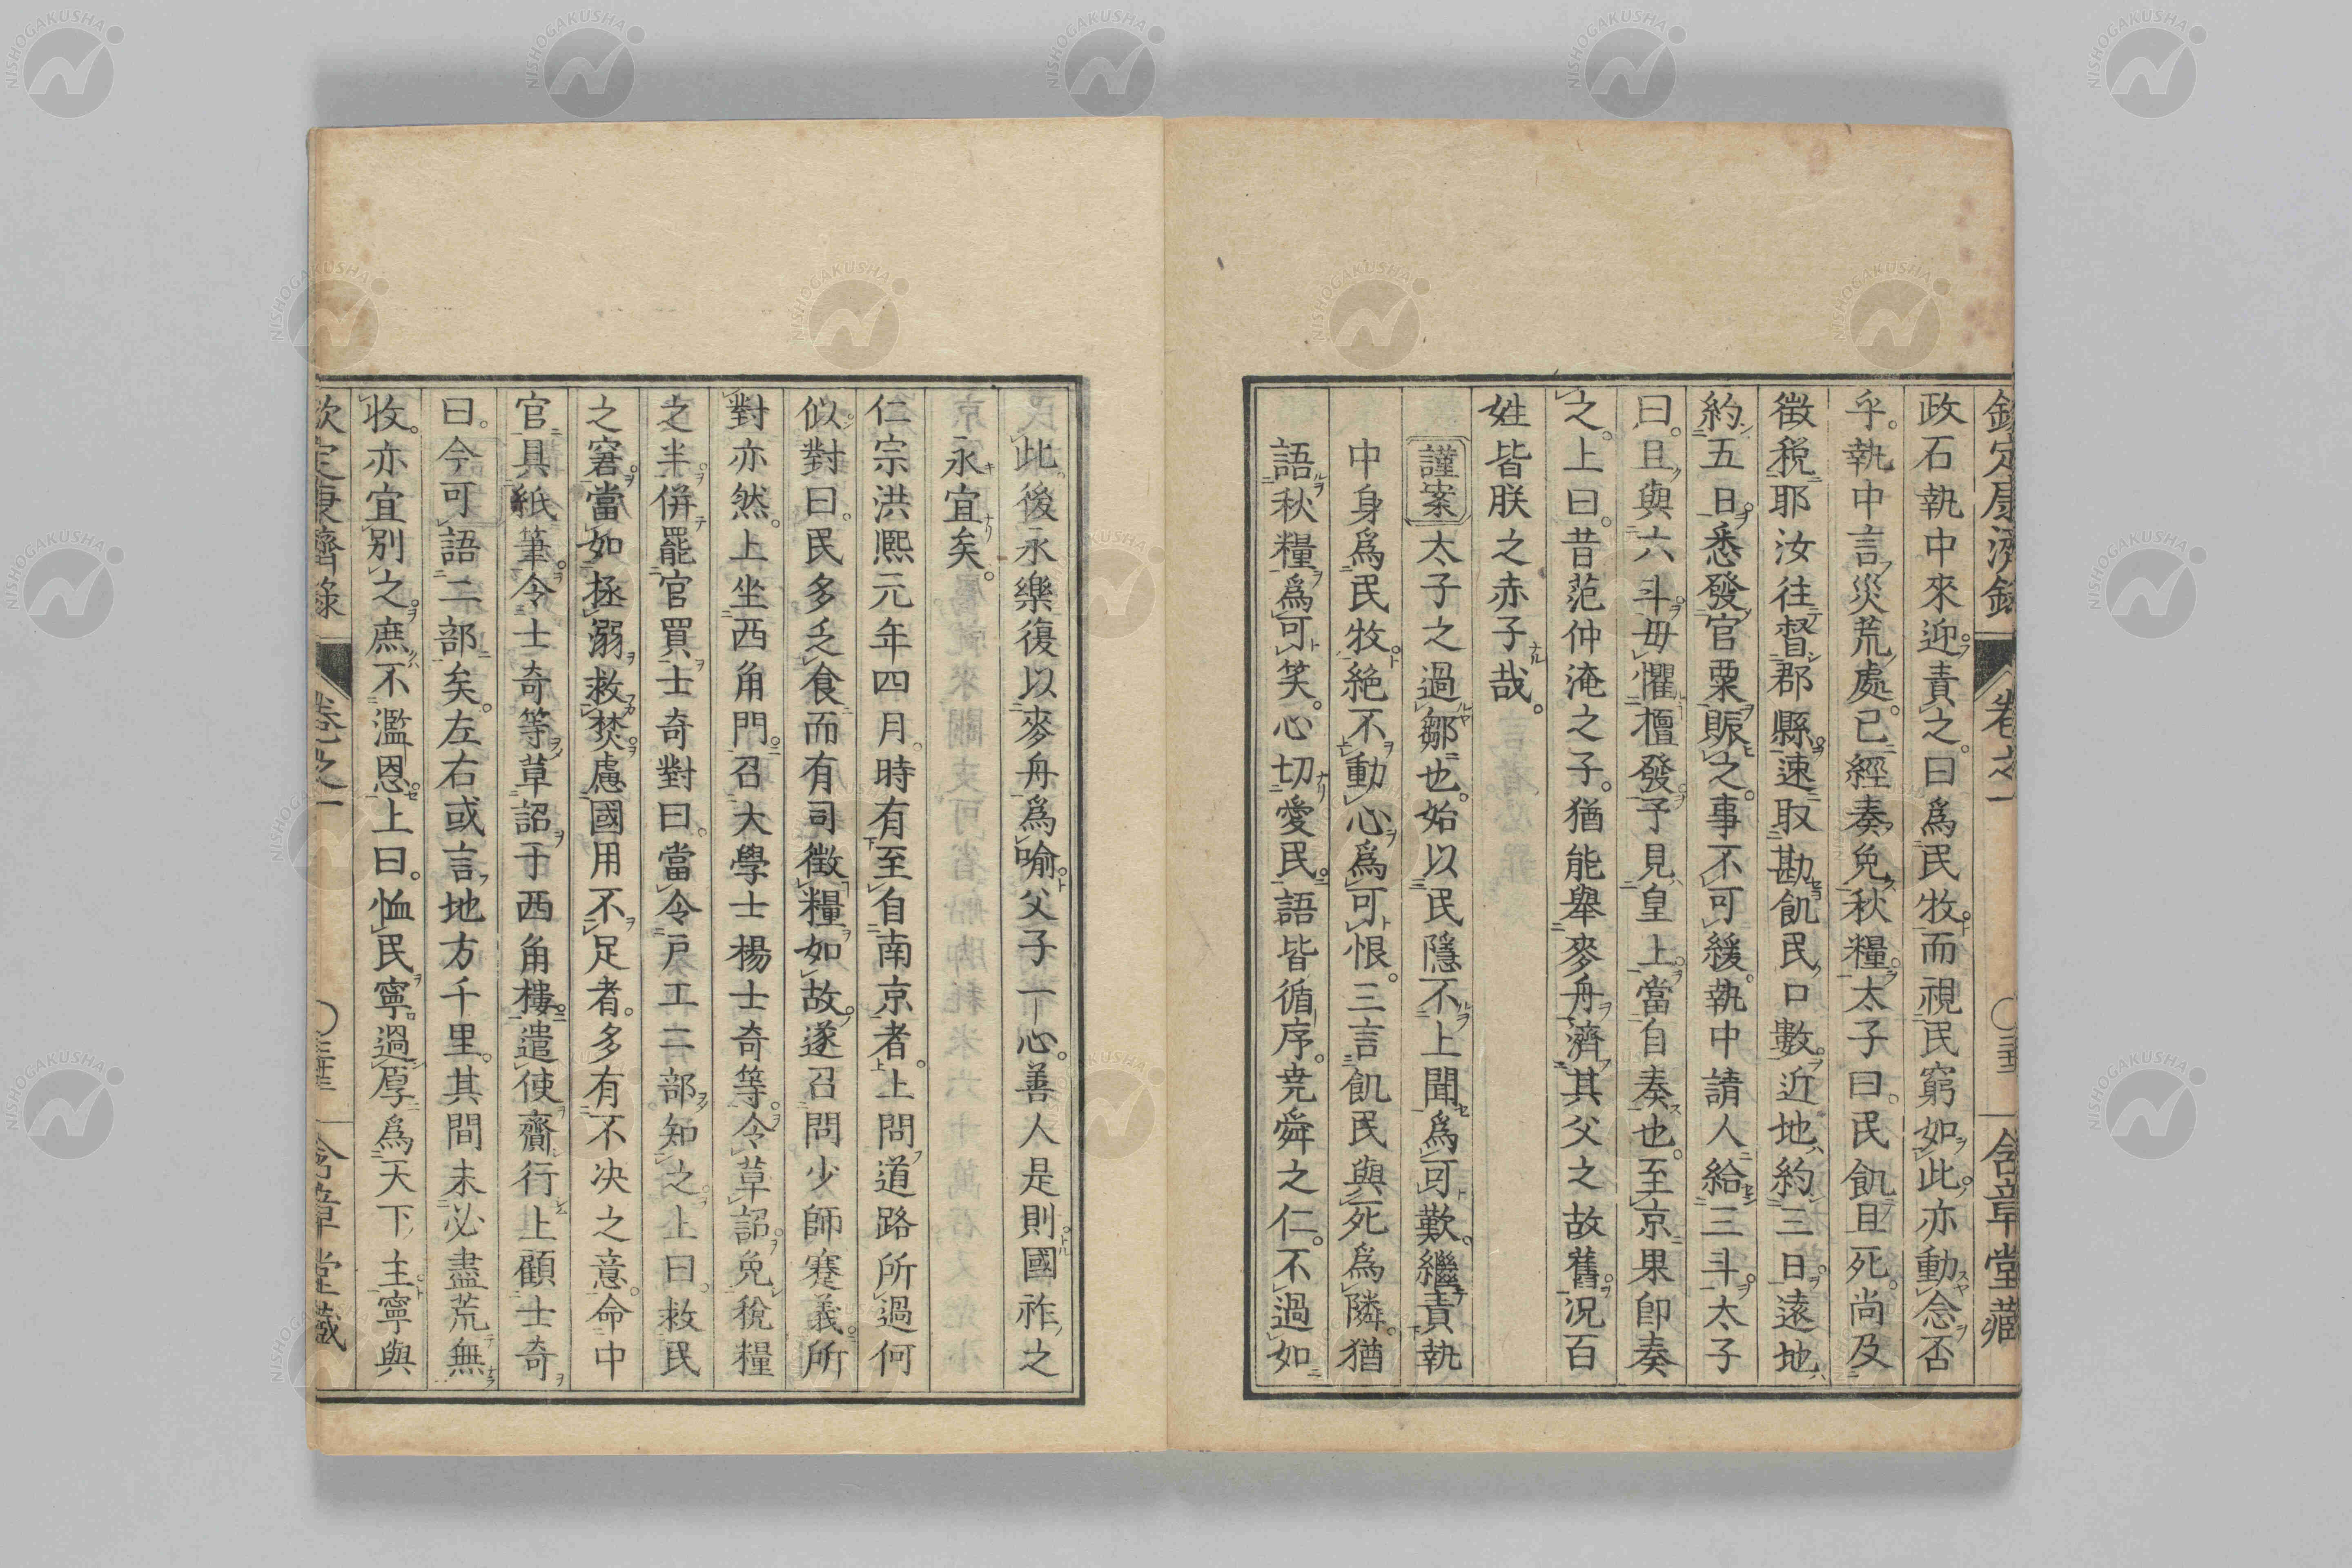 欽定康濟錄 卷之一 含章堂藏
政石執中來迎責之曰爲民牧而視民窮如此亦動念否
乎執中言災荒處已經奏免秋糧太子曰民飢且死尚及
徵稅耶汝往督郡縣速取勘飢民口數近地約三日遠地
約五日悉發官粟賑之事不可緩執中請人給三斗太子
曰且與六斗毋懼擅發予見皇上當自奏也至京果卽奏
之上曰昔范仲淹之子猶能舉麥舟濟其父之故舊況百
姓皆朕之赤子哉
謹案太子之過鄒也始以民隱不上聞爲可歎繼責執
中身爲民牧絕不動心爲可恨三言飢民與死爲隣猶
語秋糧爲可笑心切愛民語皆循序堯舜之仁不過如
此後永樂復以麥舟爲喻父子一心善人是則國祚之
永宜矣
仁宗洪熙元年四月時有至自南京者上問道路所過何
似對曰民多乏食而有司徵糧如故遂召問少師蹇義所
對亦然上坐西角門召大學士楊士奇等令草詔免稅糧
之半併罷官買士奇對曰當令戶工二部知之上曰救民
之窘當如拯溺救焚慮國用不足者多有不决之意命中
官具紙筆令士奇等草詔于西角樓遣使齎行上顧士奇
曰今可語二部矣左右或言地方千里其間未必盡荒無
收亦宜別之庶不濫恩上曰恤民寧過厚爲天下主寧與
欽定康濟錄 卷之一 含章堂藏
NISHOGAKUSHA